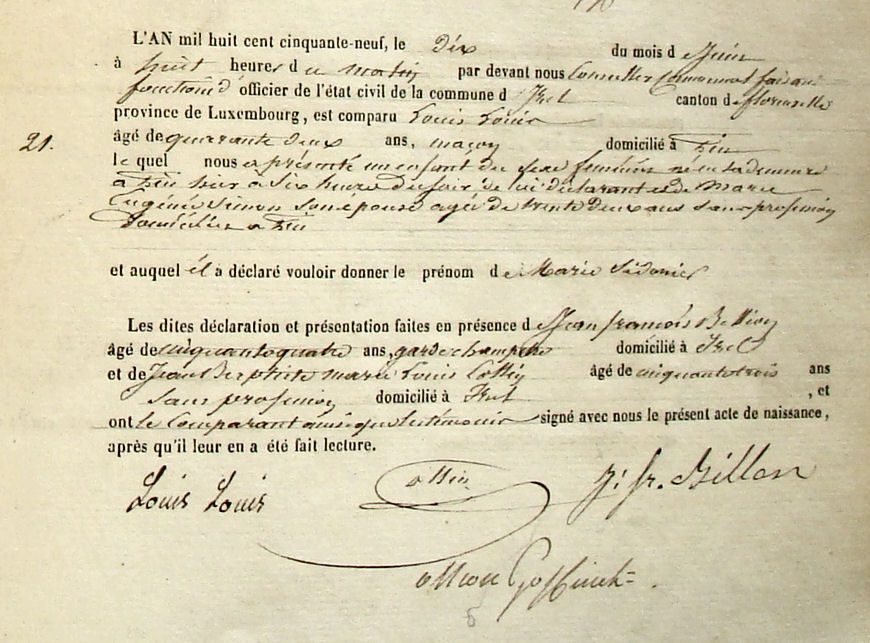 L'AN mil huit cent cinquante-neuf, le Dix du mois de Juin
à huit heures du matin par devant nous Conseiller Communal faisant
fonctions d'officier de l'état civil de la commune d'Izel canton de florenville
province de Luxembourg, est comparu Louis Louis
21. âgé de quarante deux ans, maçon domicilié à Pin
le quel nous a présenté un enfant du sexe féminin né en sa demeure
à Pin hier à Six heures du soir de lui déclarant et de Marie
Eugénie Simon son épouse agée de trente deux ans sans profession
domiciliée à Pin
et auquel il a déclaré vouloir donner le prénom de Marie Sidonie
Les dites déclaration et présentation faites en présence de Jean françois Billion
âgé de cinquante quatre ans, garde champêtre domicilié à Izel
et de Jean Baptiste marie Louis âgé de cinquante trois ans
sans profession domicilié à Izel , et
ont le Comparant ainsi que les témoins signé avec nous le présent acte de naissance,
après qu'il leur en a été fait lecture.
Louis Louis J: fr. Billon